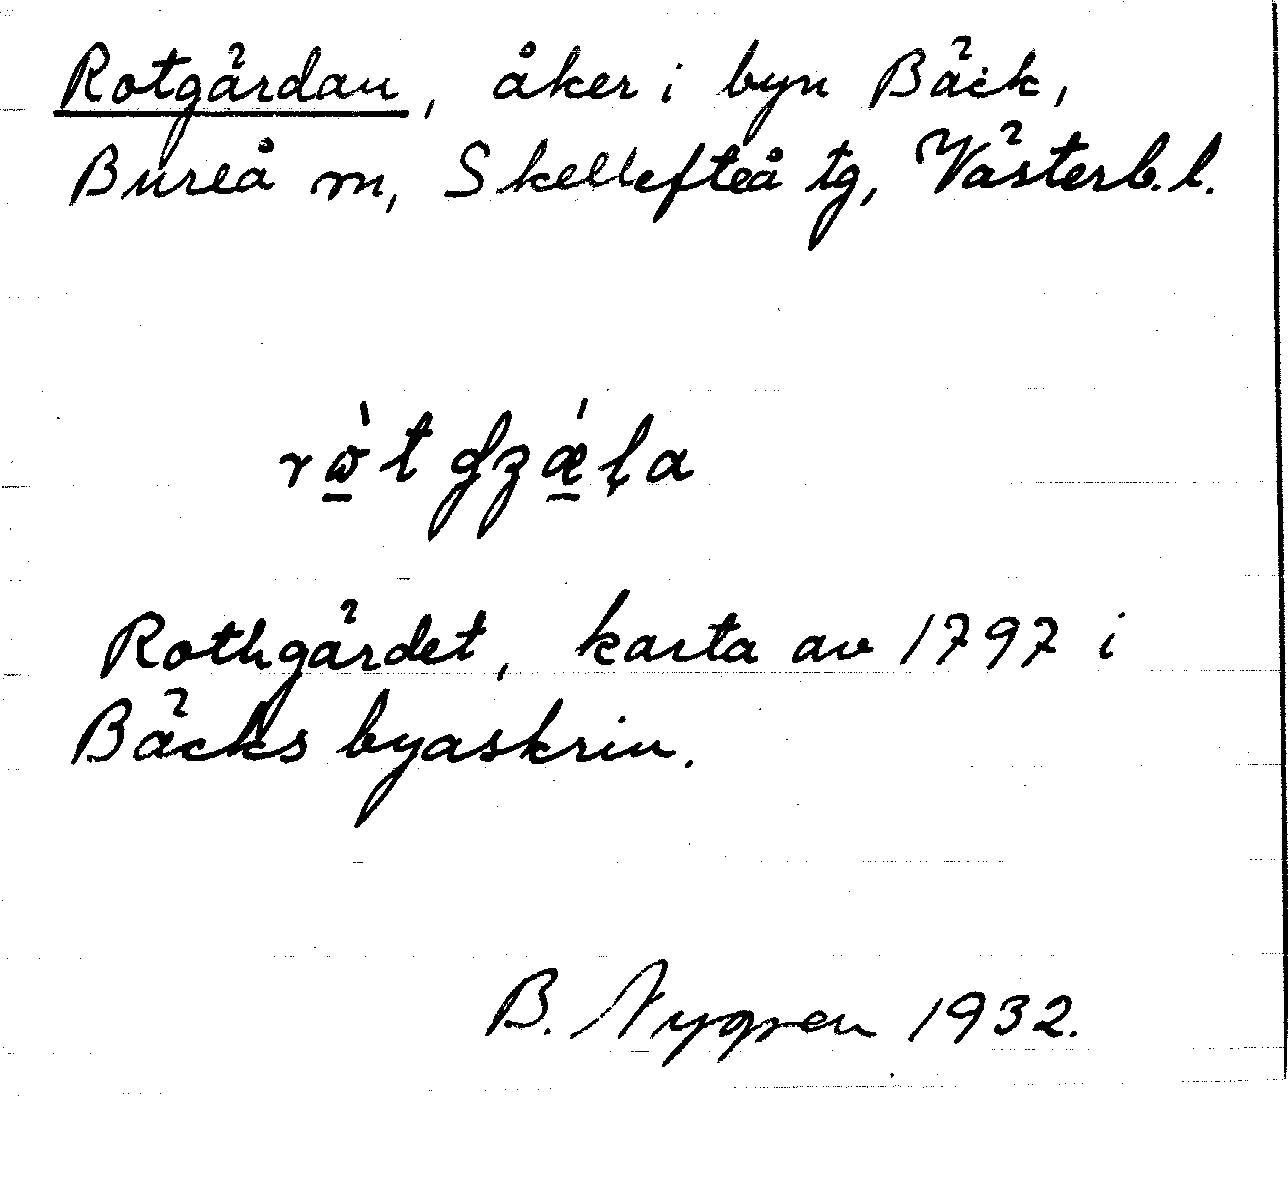 Rotgärdan, åker i byn Bäck,
Bureå m, Skellefteå tg, Västerb. l.
rὼ̲tʤǽ̲ļa
Rothgärdet, karta av 1797 i
Bäcks byaskrin.
B. Nygren 1932.